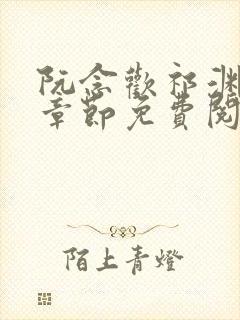 阮念歡祁淵
章節免費閱
陌上青燈